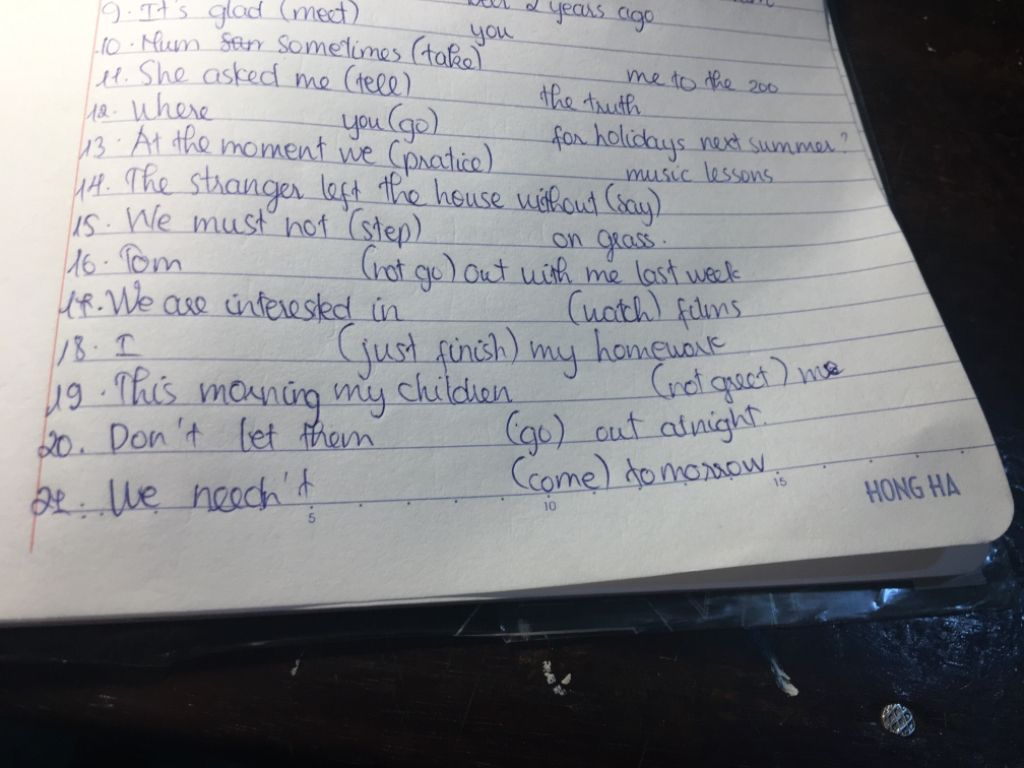 2 years ago
9. It's glad (meet) you
10. Mum sometimes (take) me to the zoo
11. She asked me (tell) the truth
12. Where you (go) for holidays next summer?
13. At the moment we (pratice) music lessons
14. The stranger left the house without (say)
15. We must not (step) on grass.
16. Tom (not go) out with me last week
17. We are interested in (watch) films
18. I (just finish) my homework
19. This morning my children (not greet) me
20. Don't let them (go) out atnight.
21. We needn't (come) tomorrow.
5 10 15
HONG HA